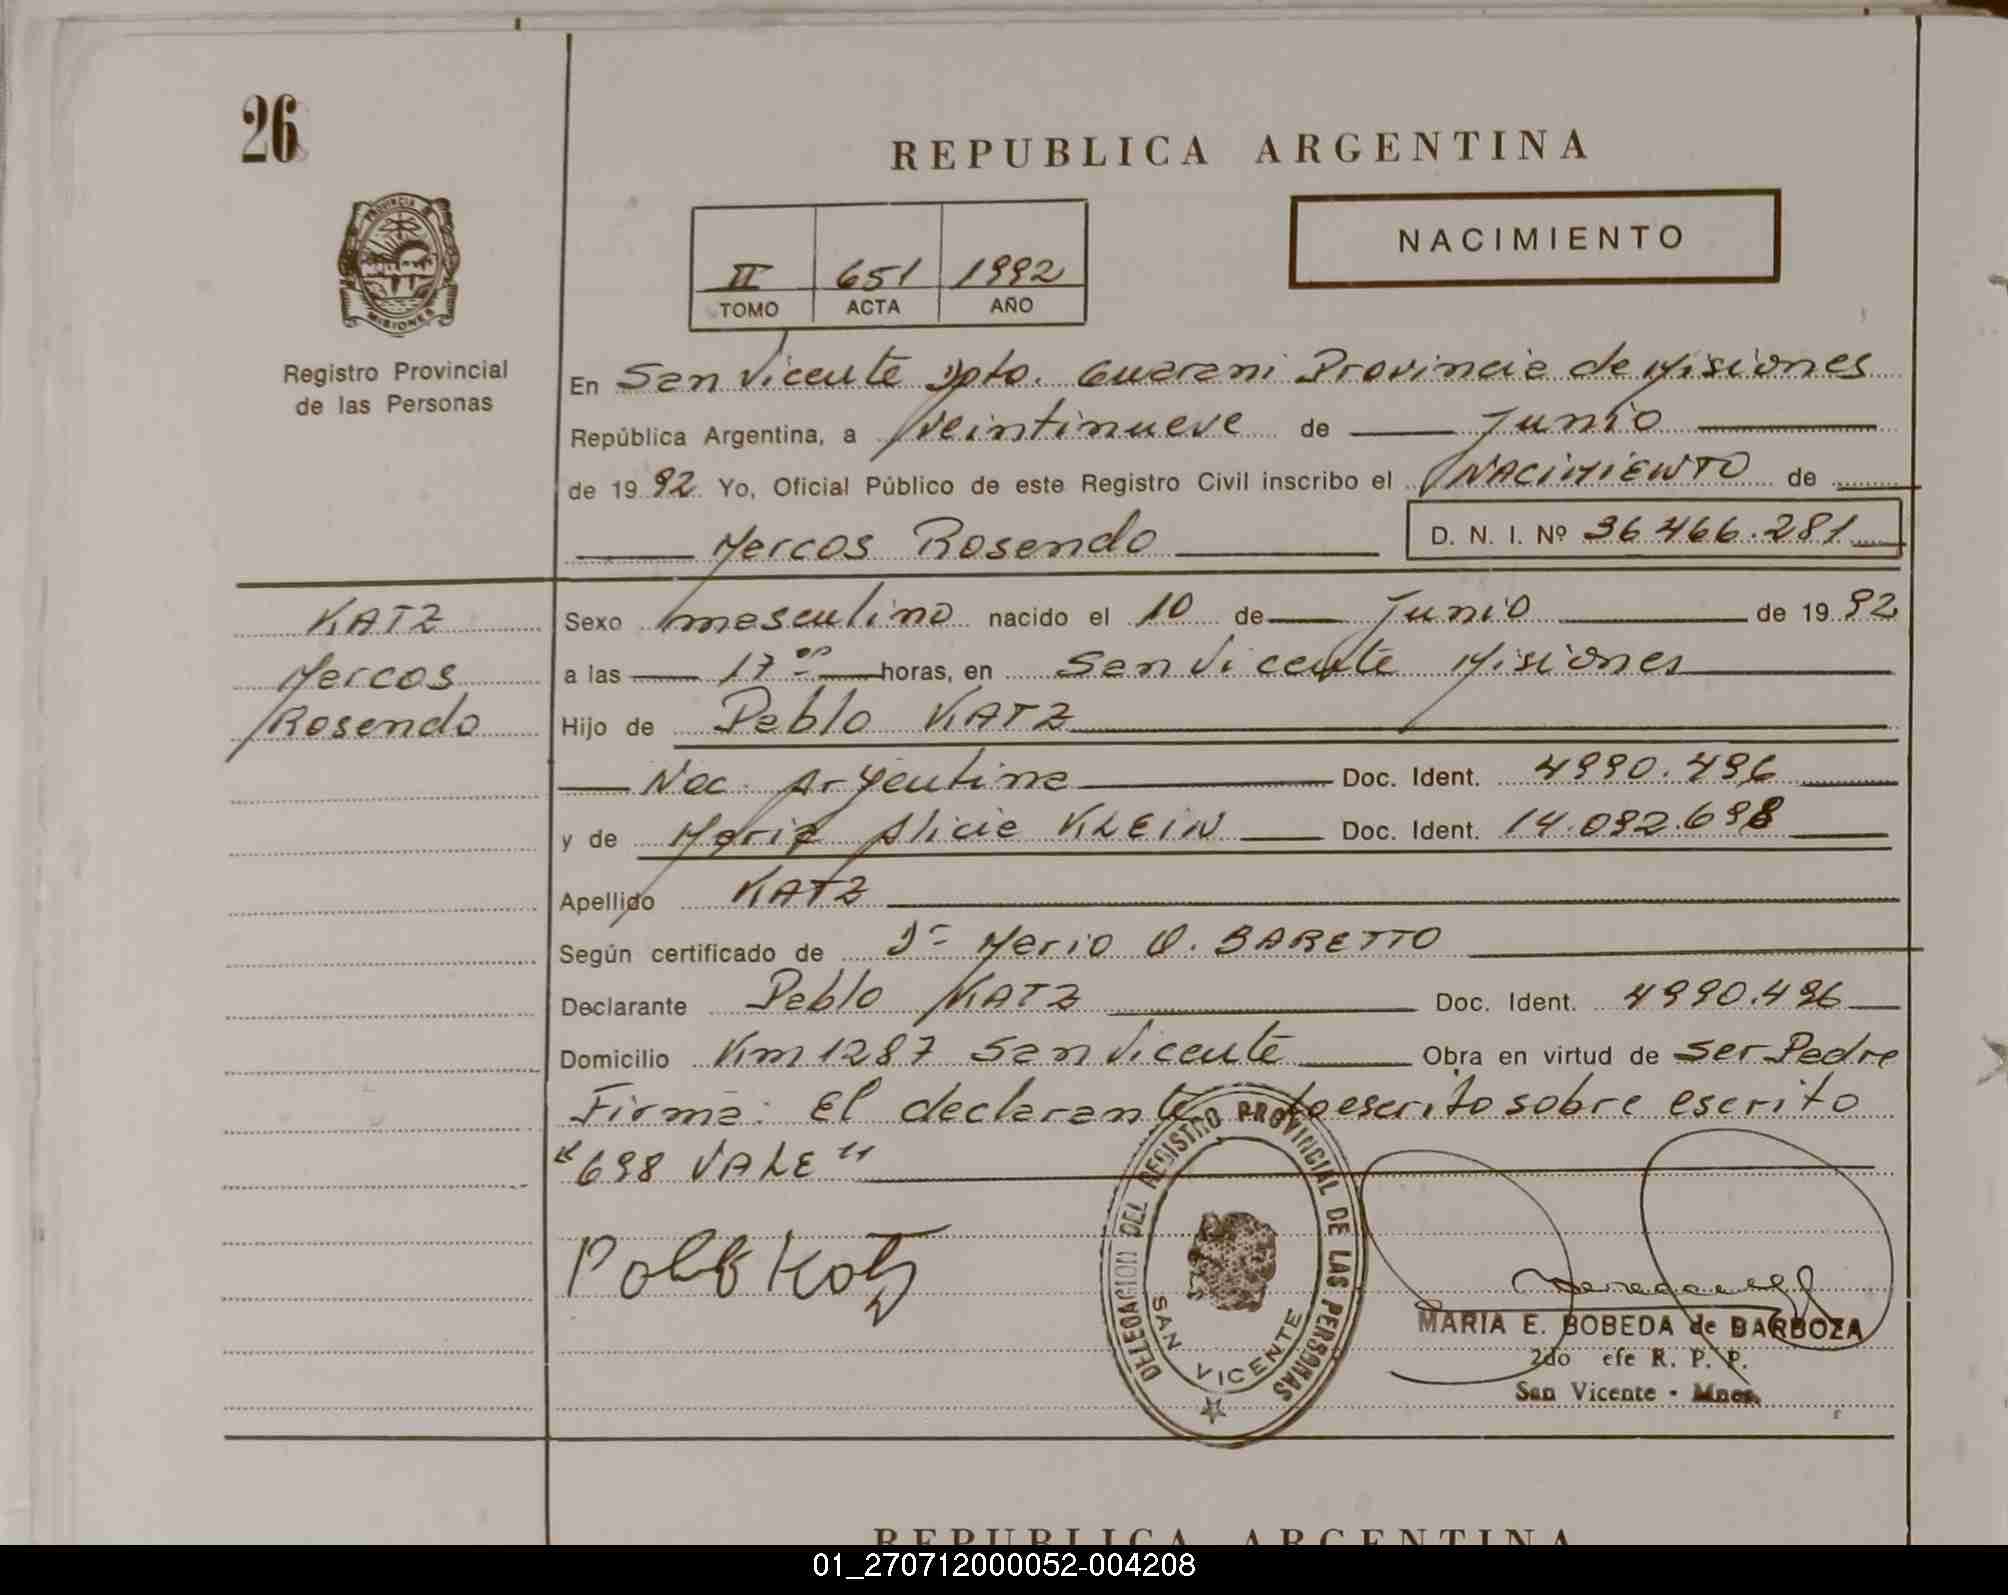 26
REPUBLICA ARGENTINA
PROVINCIA DE MISIONES
NACIMIENTO
II 651 1992
TOMO ACTA AÑO
Registro Provincial
de las Personas
En San Vicente Dpto. Guarani Provincia de Misiones
República Argentina, a Veintinueve de Junio
de 1992 Yo, Oficial Público de este Registro Civil inscribo el NACIMIENTO de
Marcos Rosendo D. N. I. Nº 36.466.281
KATZ
Marcos
Rosendo
Sexo masculino nacido el 10 de Junio de 1992
a las 17 00 horas, en San Vicente Misiones
Hijo de Pablo KATZ
Nac. Argentina Doc. Ident. 4990.496
y de Maria Alicia KLEIN Doc. Ident. 14.092.698
Apellido KATZ
Según certificado de Dr Mario O. BARETTO
Declarante Pablo KATZ Doc. Ident. 4990.496
Domicilio Km 1287 San Vicente Obra en virtud de ser Padre
Firma: El declarante Lo escrito sobre escrito
"698 VALE"
Pablo Katz
DELEGACION DEL REGISTRO PROVINCIAL DE LAS PERSONAS
SAN VICENTE
MARIA E. BOBEDA de BARBOZA
2do efe R. P. P.
San Vicente - Mnes.
REPUBLICA ARGENTINA
01_270712000052-004208